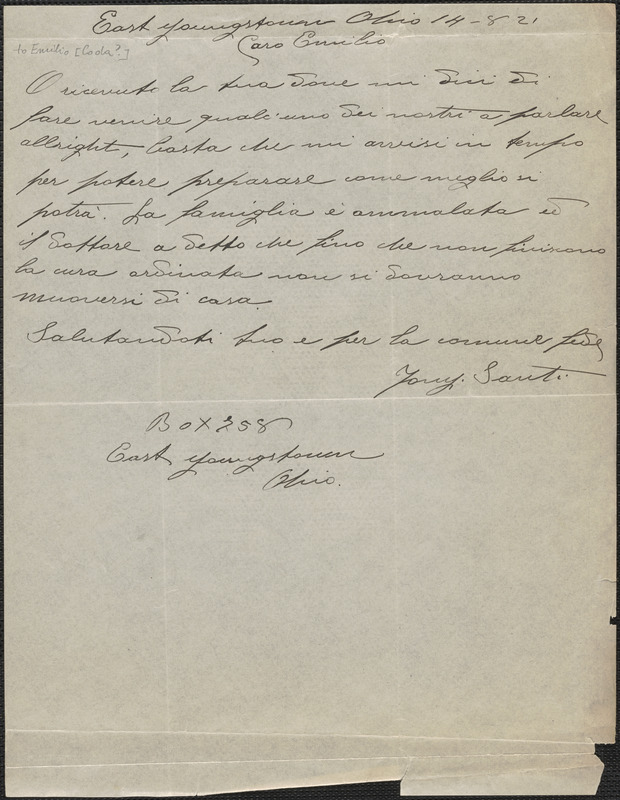 East Youngstown Ohio 14-8 21
to Emilio [Coda?]
Caro Emilio
O ricevuto la tua dove mi dici di
fare venire qualc'uno dei nostri a parlare
allright, basta che mi avvisi in tempo
per potere preparare come meglio si
potrà. La famiglia è ammalata ed
il dottore a detto che fino che non finiscono
la cura ordinata non si dovranno
muoversi di casa.
Salutandoti tuo e per la comune fede
Tony. Santi
Box 258
East Youngstown
Ohio.